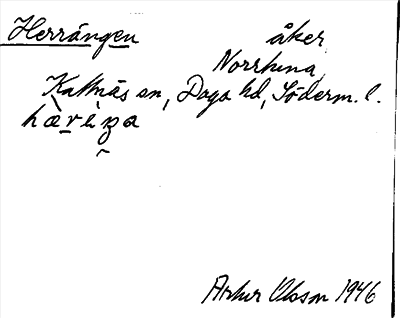 Herrängen åker
Norrtuna
Kattnäs sn, Daga hd, Söderm. l.
Arthur Olsson 1946